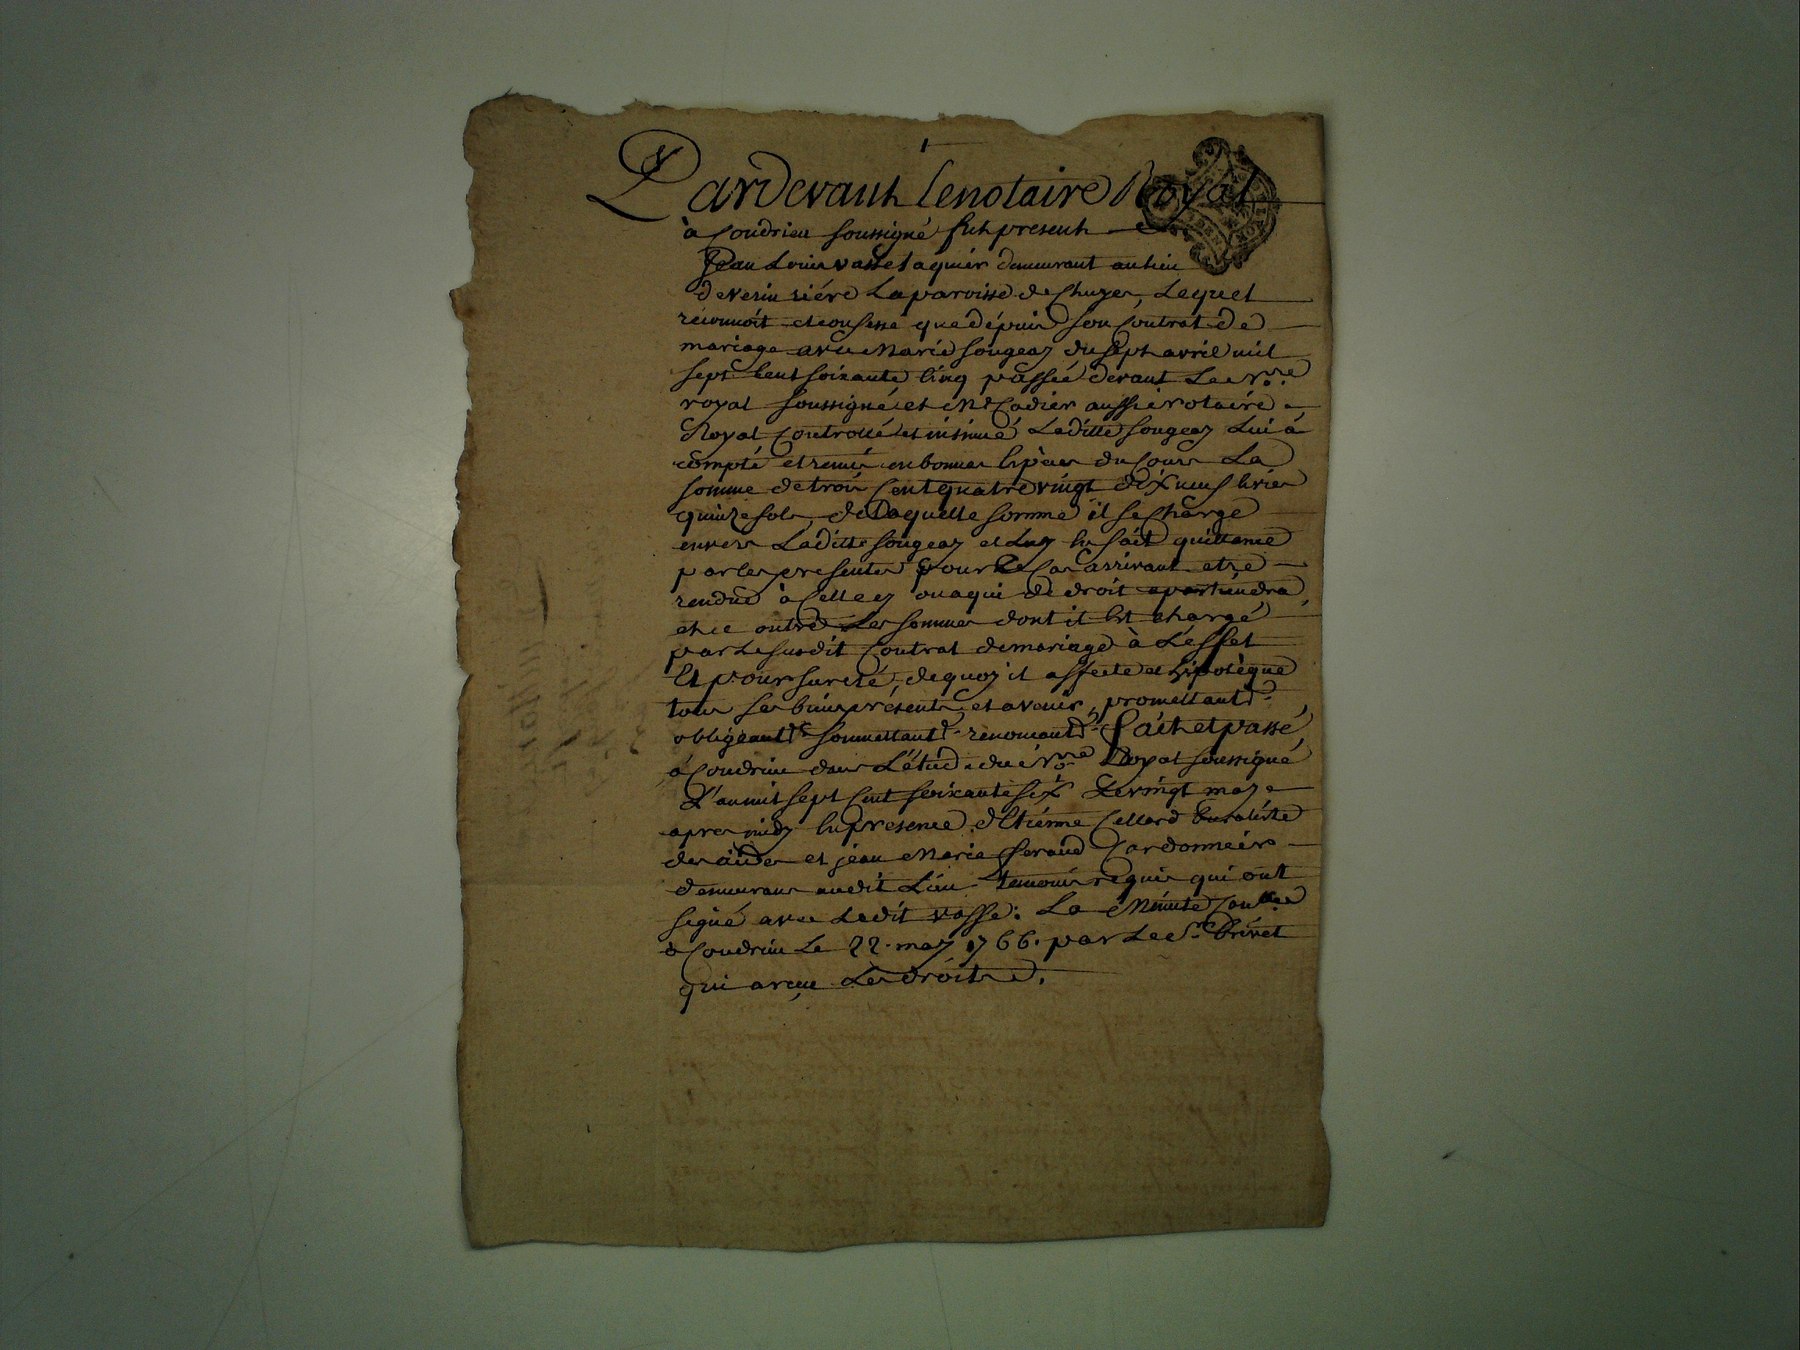 Pardevant le notaire Royal
à Condrieu soussigné fut present
Jean Louis vasse taquier demeurant au lieu
de verin riére La paroisse de Chuyer, Lequel
réconnoit et confesse que dépuis son Contrat de
mariage avec Marie Sougeay du sept avril mil
sept cent soixante cinq passée devant Le Nre
royal soussigné et Me Cadier aussi Notaire
Royal Controllé et insinué Laditte Sougeay Lui a
compté et remis en bonnes Espèces du Cours La
somme de trois Cent quatre vingt dix neuf livres
quinze sols, de Laquelle somme il se Charge
envers Laditte Sougeay et Luy En fait quittance
par les presentes pour Le Cas arrivant etre
rendüe à Celle cy ou a qui de droit apartiendra,
et ce outre Les sommes dont il Est chargé
par Le susdit Contrat de mariage à L'effet
Et pour sureté, de quoy il affecte et hipotèque
tous ses biens présents et avenir, promettant &
obligeant & soumettant & renonçant & fait et passé
à Condrieu dans L'étude du Nre Royal soussigné
L'an mil sept Cent soixante six Le vingt may
apres midy En presence d'Etiénne Cellard Buraliste
des aides et jean Marie Feraud Cordonnier
demeurans audit Lieu témoins requis qui ont
signé avec Ledit vasse: La Minute Conllée
à Condrieu Le 22. may 1766. par Le Sr. Brivet
qui a reçu Les droits.